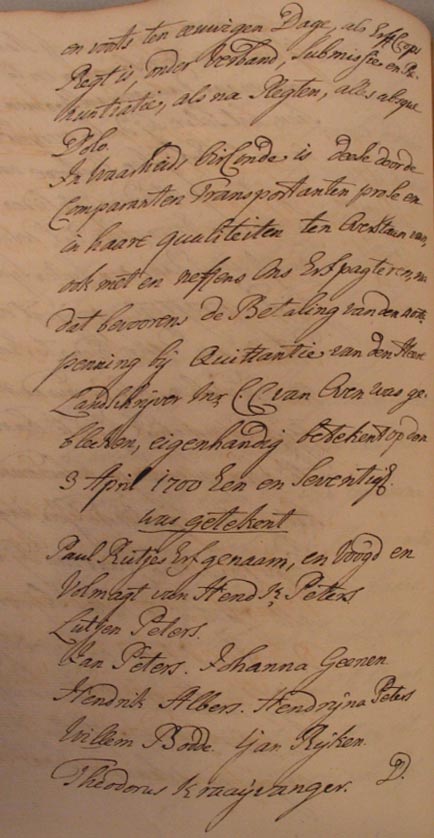 en voorts ten eeuwigen Dage, als Erff Coops
Regt is, onder Verband, Submissie en Re¬
nuntiatie, als na Regten, alles absque
Dolo.
In Waarheids birconde is deese door de
Comparanten Transportanten pro se en
in haare qualiteiten ten Overstaen van,
ook met en neffens Ons Erfpagteren, na
dat bevoorens de Betaling van den
penning bij Quittantie van den Heere
Landschrijver Mr. C: C van Aven was ge¬
bleeken, eigenhandig betekent op den
3 April 1700 Een en Seventig.
was getekent
Paul Rutjes Erfgenaam, en Voogd en
Volmagt van Hend k. Peters
Lutjen Peters.
Van Peters. Johanna Geenen.
Hendrik Albers. Hendrijna Peters
Willem Bodde. Jan Rijken.
Theodorus Kraaijvanger. D.